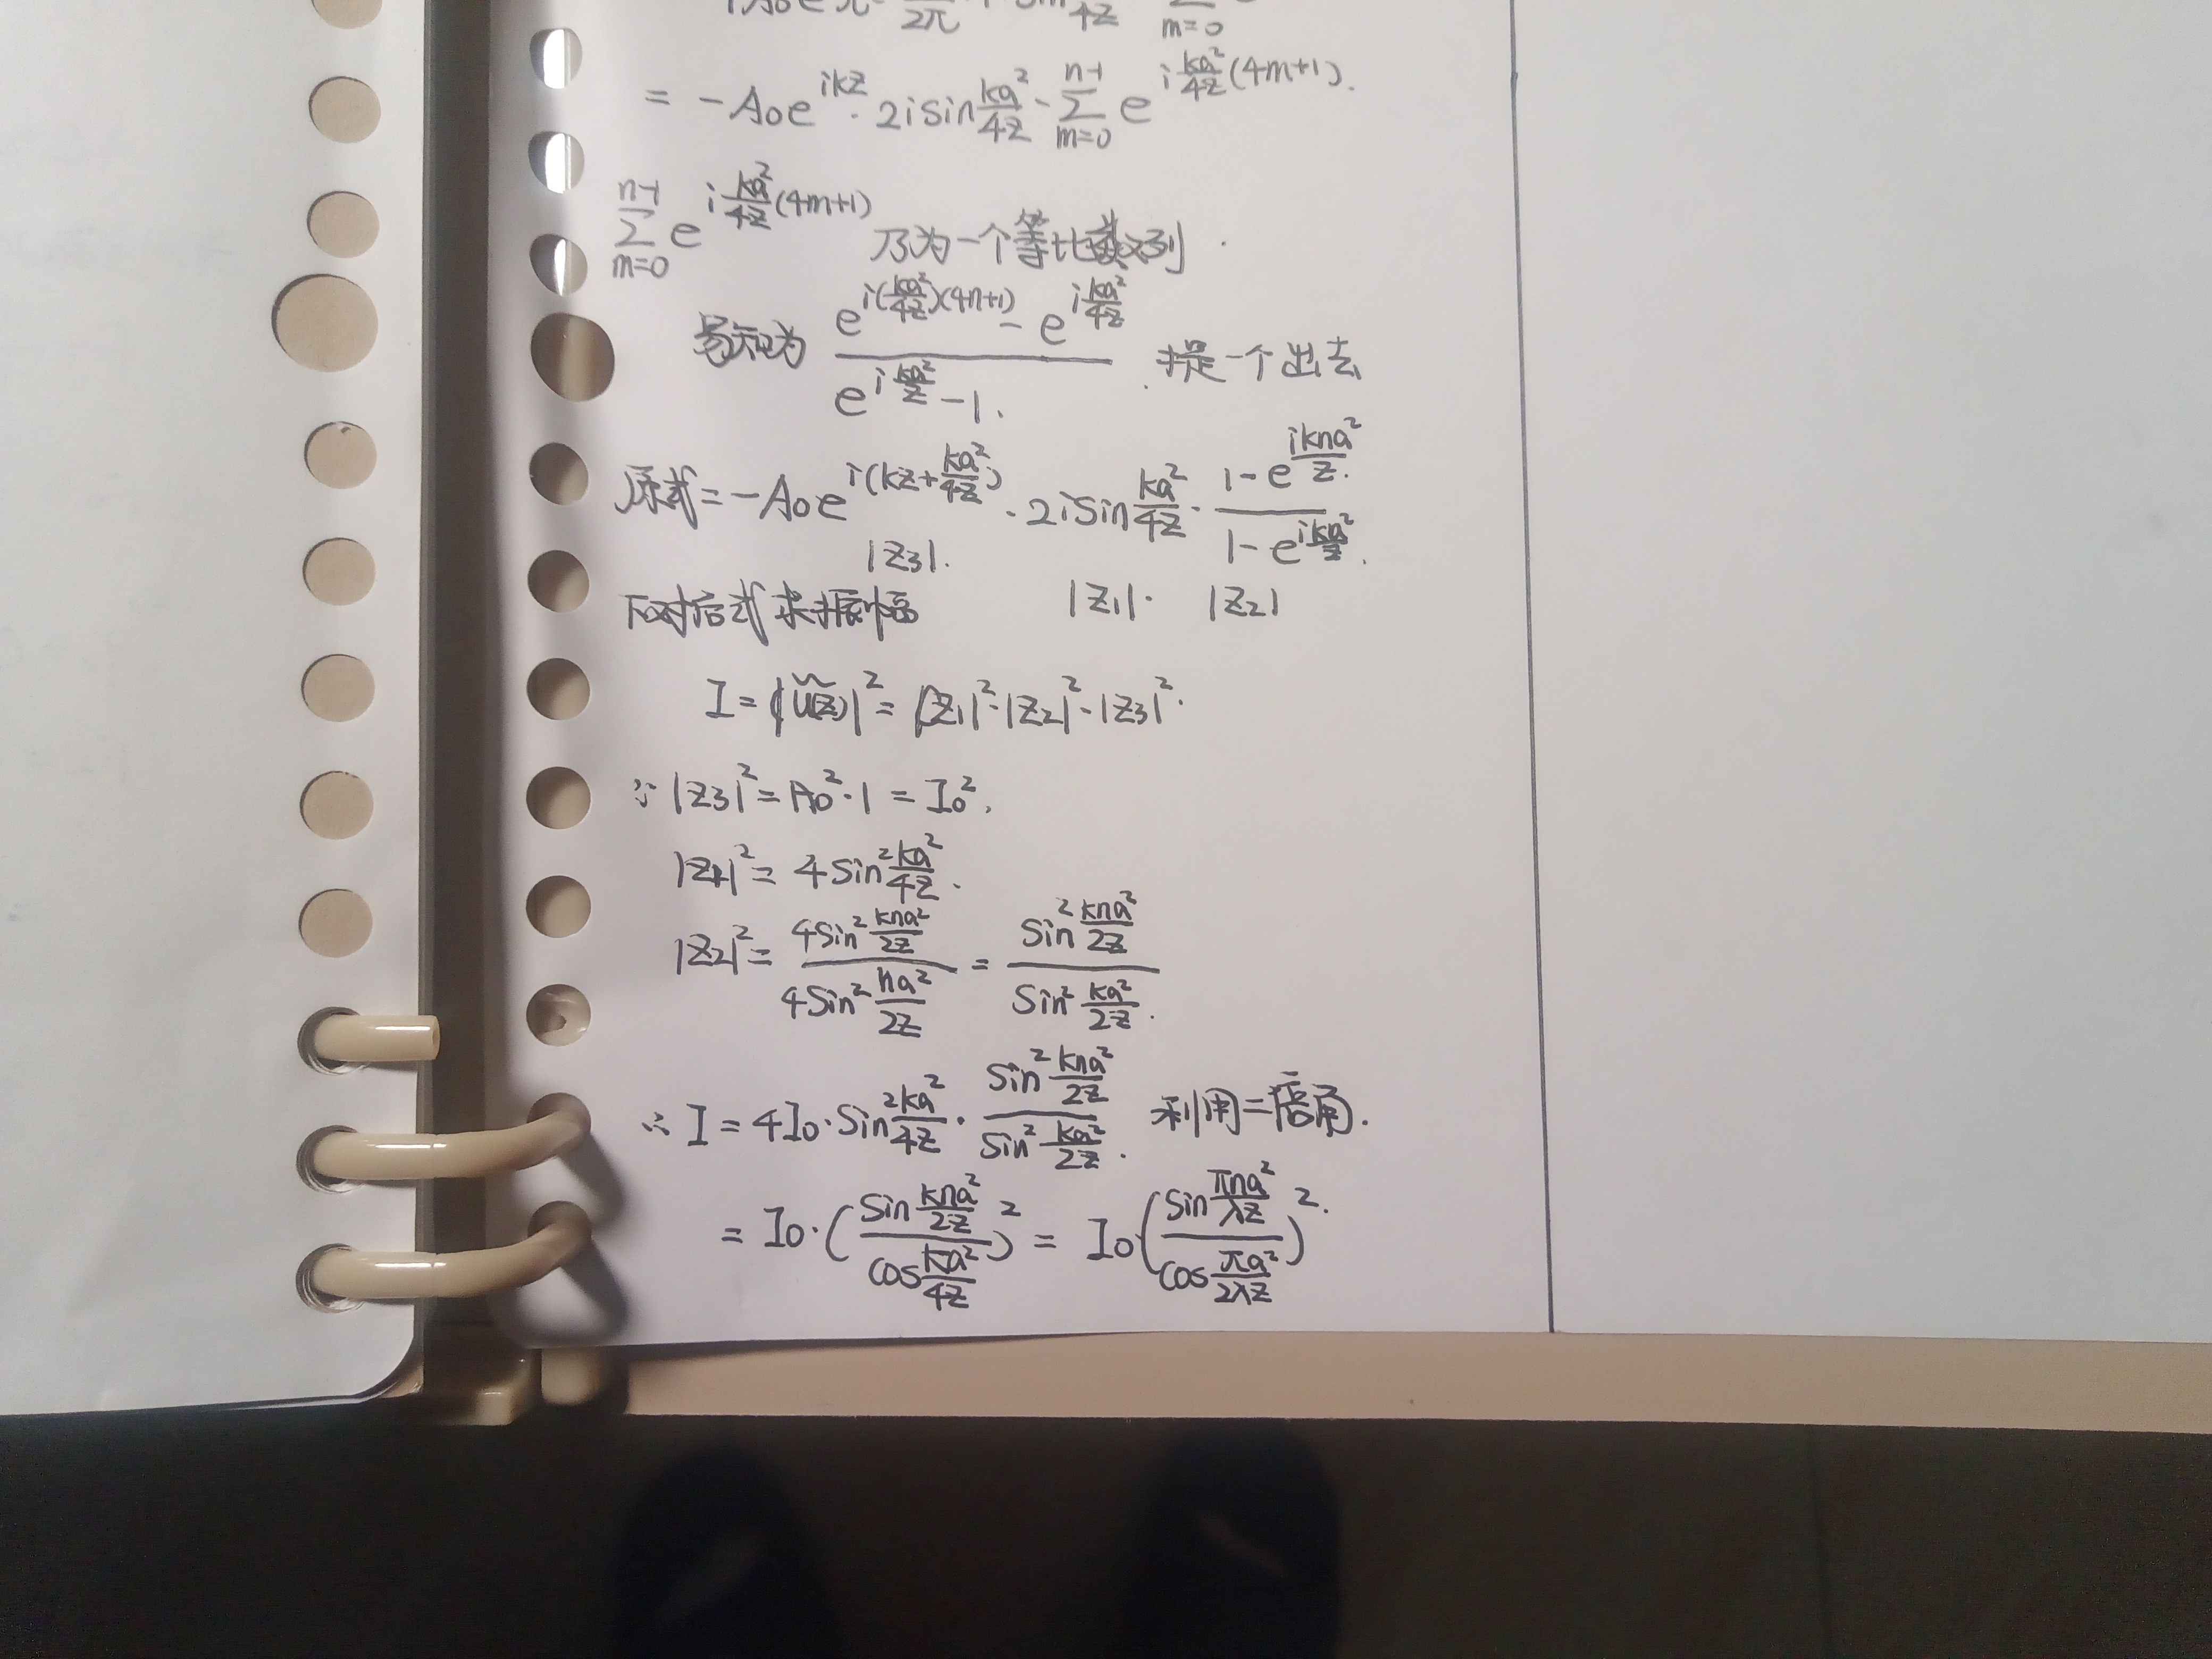 2π 4z m=0
= -A₀e^{ikz} · 2i sin\frac{ka²}{4z} · \sum_{m=0}^{n-1} e^{i\frac{ka²}{4z}(4m+1)}.
\sum_{m=0}^{n-1} e^{i\frac{ka²}{4z}(4m+1)} 乃为一个等比数列.
易知为 \frac{e^{i(\frac{ka²}{4z})(4n+1)} - e^{i\frac{ka²}{4z}}}{e^{i\frac{ka²}{z}} - 1}. 提一个出去
原式 = -A₀e^{i(kz+\frac{ka²}{4z})} · 2i sin\frac{ka²}{4z} · \frac{1-e^{\frac{ikna²}{z}}}{1-e^{\frac{ika²}{z}}}.
|z₃|.
下对后式求振幅 |z₁|· |z₂|
I = |ũ(z)|² = |z₁|²·|z₂|²·|z₃|².
∵ |z₃|² = A₀²·1 = I₀².
|z₁|² = 4sin²\frac{ka²}{4z}.
|z₂|² = \frac{4sin²\frac{kna²}{2z}}{4sin²\frac{na²}{2z}} = \frac{sin²\frac{kna²}{2z}}{sin²\frac{ka²}{2z}}.
∴ I = 4I₀·sin²\frac{ka²}{4z} · \frac{sin²\frac{kna²}{2z}}{sin²\frac{ka²}{2z}}. 利用二倍角.
= I₀·(\frac{sin\frac{kna²}{2z}}{cos\frac{ka²}{4z}})² = I₀(\frac{sin\frac{πna²}{λz}}{cos\frac{πa²}{2λz}})².